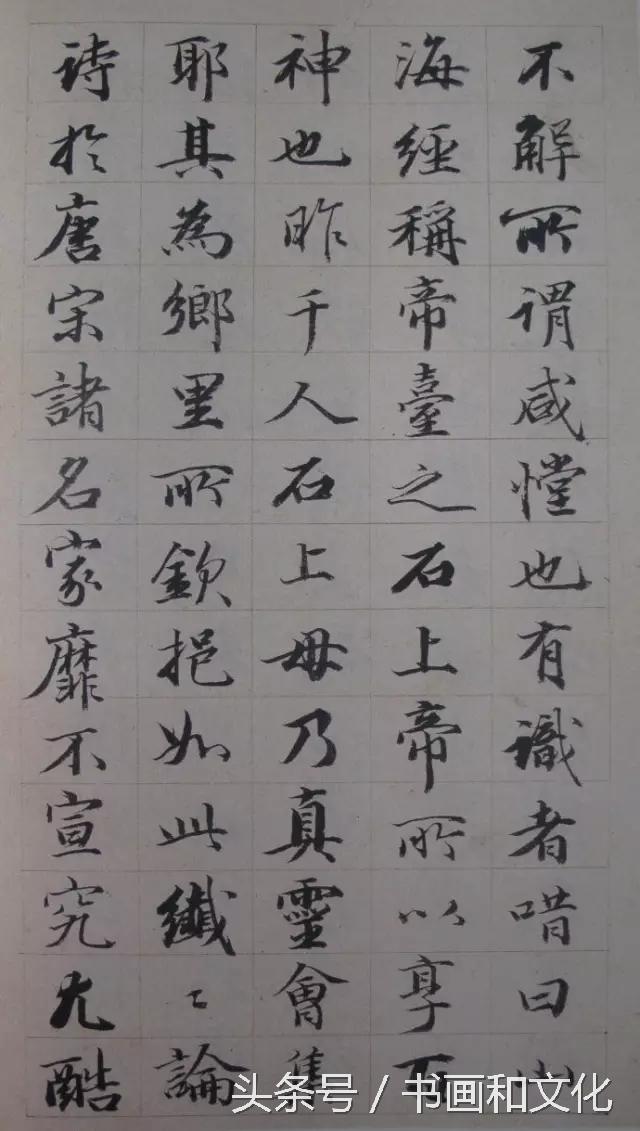 不解所謂咸憆也有識者唶曰山
海經稱帝臺之石上帝所以享百
神也昨千人石上毋乃真靈會集
耶其為鄉里所欽挹如此纖〻論
詩於唐宋諸名家靡不宣究尤酷
头条号 / 书画和文化